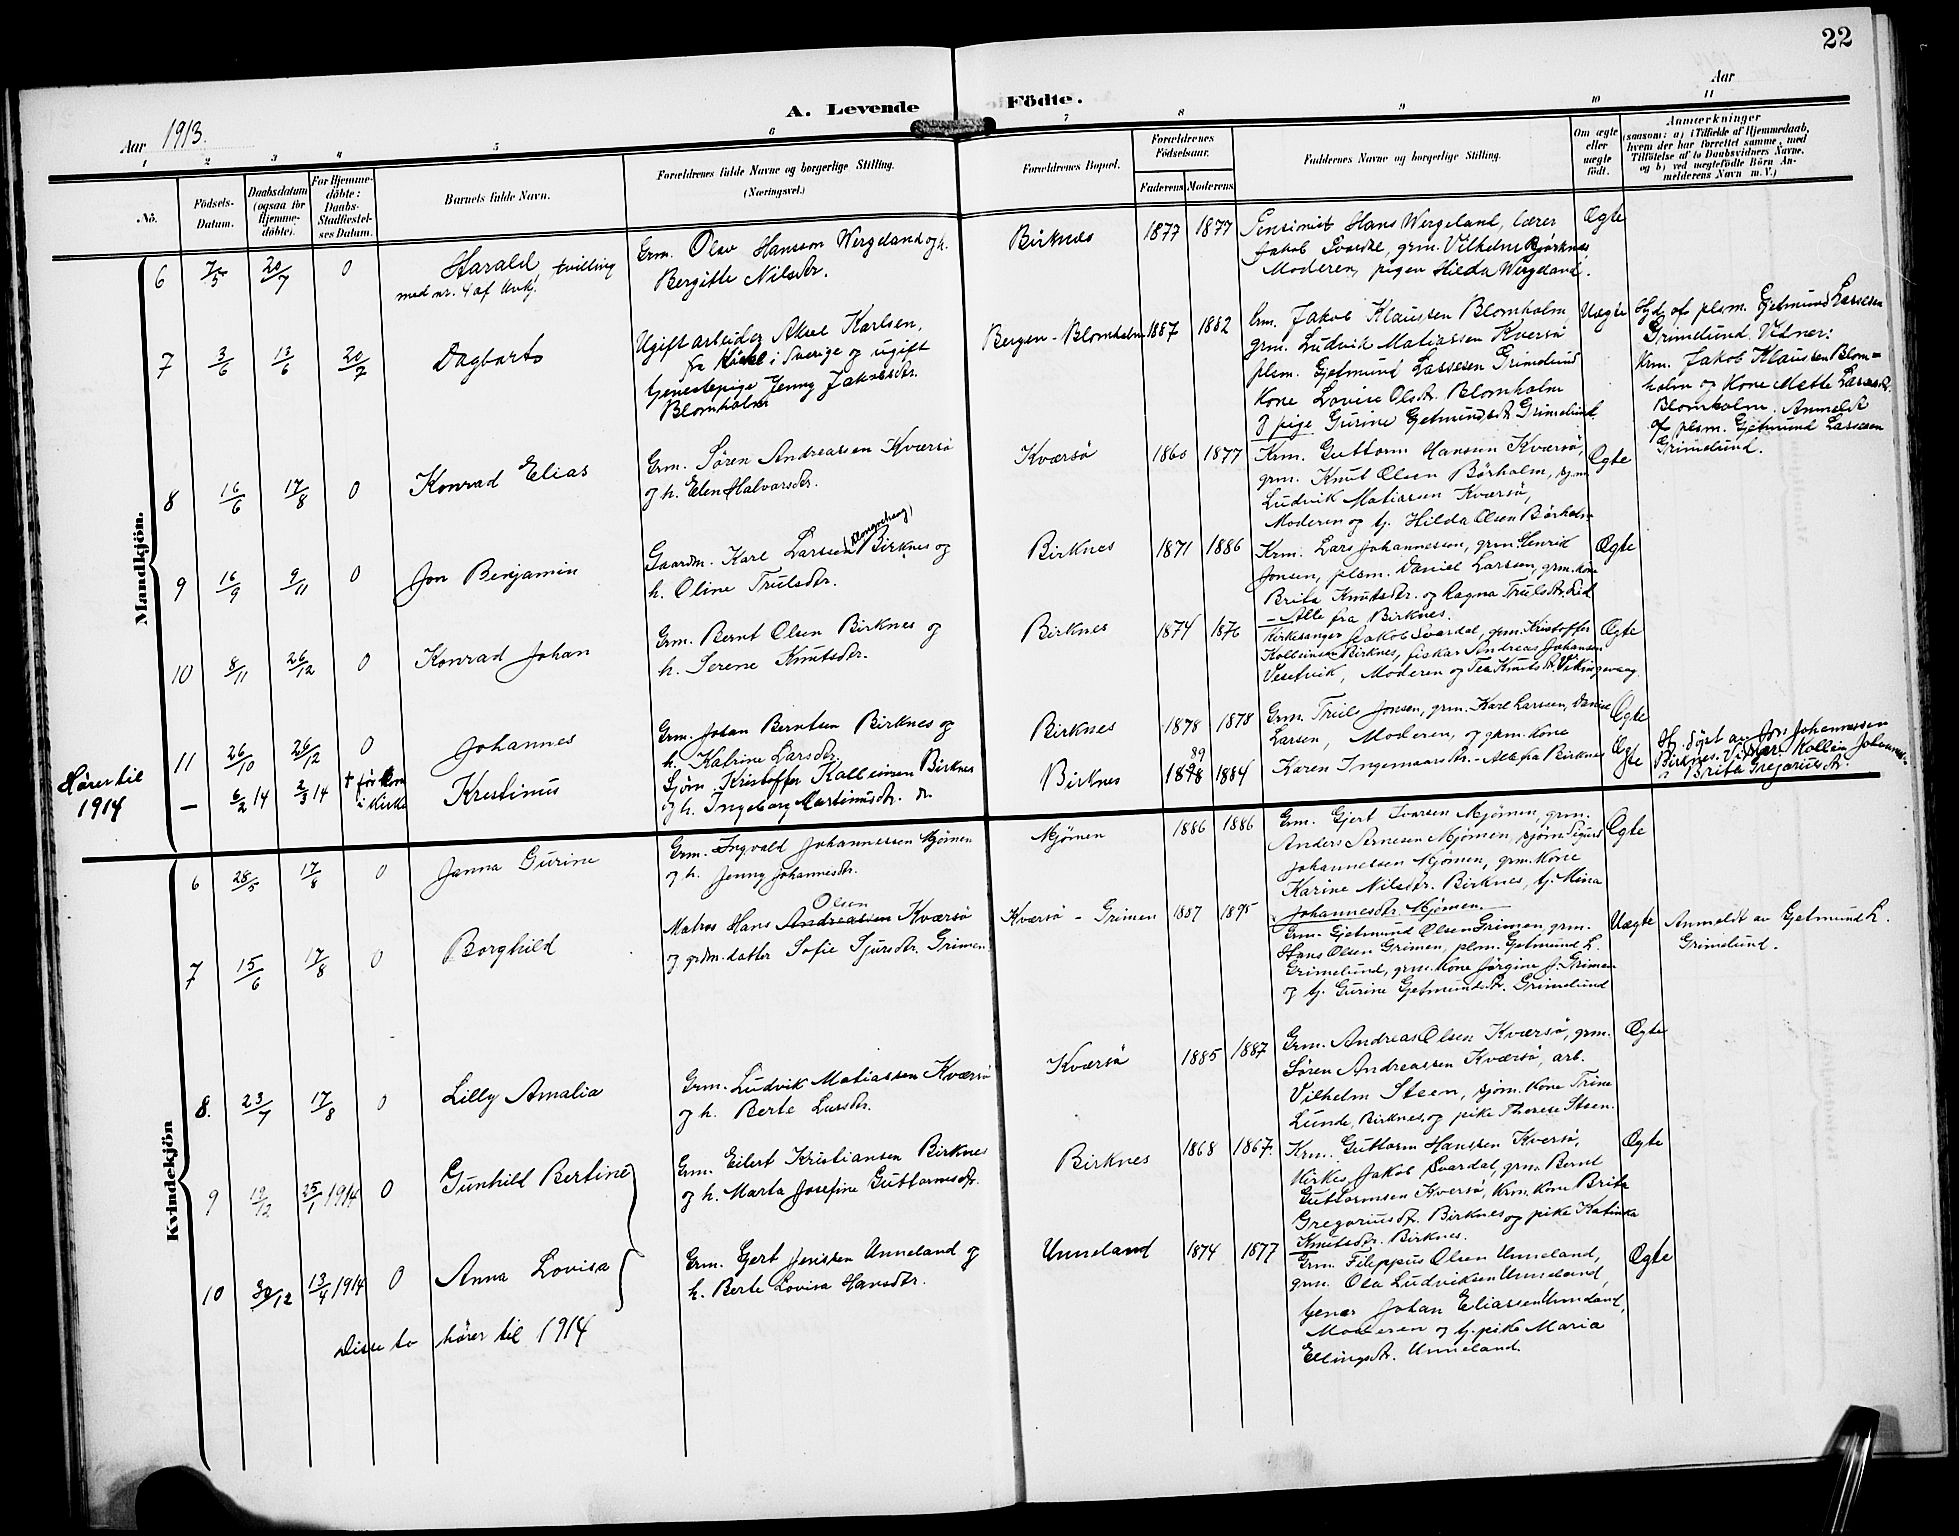 22
Aar 1913.
A. Levende Födte.
Aar
1 2 3 4 5 6 7 8 9 10 11
No.
Födsels-Datum.
Daabsdatum (ogsaa for Hjemme-döbte).
For Hjemme-döbte: Daabs-Stadfæstel-ses Datum.
Barnets fulde Navn.
Forældrenes fulde Navne og borgerlige Stilling.
(Næringsvei.)
Forældrenes Bopæl.
Forældrenes Födselsaar.
Faderens Moderens
Faddernes Navne og borgerlige Stilling.
Om ægte eller uægte födt.
Anmærkninger
(saasom: a) i Tilfælde af Hjemmedaab,
hvem der har forrettet samme, med
Tilföielse af to Daabsvidners Navne,
og b) ved uægtefödte Börn An-
melderens Navn m. V.)
Mandkjön.
6 7/5 20/7 0
Harald, tvilling
med nr. 4 af kvkj.
Grm. Olav Hansson Wergeland og h.
Bergitte Nilsdtr.
Birknes 1877 1877
Pensionist Hans Wergeland, lærer
Jakob Svardal, grm. Vilhelm Bjørknes
Moderen, pigen Hilda Wergeland.
Ægte
7 3/6 13/6 20/7
Dagbarto
Ugift arbeider Aksel Karlsen,
fra i Sverige og ugift
tjenestepige Jenny Jakobsdtr.
Blomholm
Bergen - Blomholm 1887 1882
Krm. Jakob Klaussen Blomholm
grm. Ludvik Matiassen Kversö
plsm. Gjetmund Lassesen Grimelund
kone Lovise Olsdtr. Blomholm
og pige Gurine Gjetmundsdtr. Grimelund
Uægte
Hjd. af plsm. Gjetmund Lassesen
Grimelund. Vidner:
Krm. Jakob Klaussen Blom=
holm og kone Mette Lassesdtr.
Blomholm. Anmeldt
af plsm. Gjetmund Lassesen
Grimelund.
8 16/6 17/8 0
Konrad Elias
Grm. Sören Andreassen Kværsö
og h. Elen Halvarsdtr.
Kværsö 1860 1877
Krm. Guttorm Hanssen Kværsö,
grm. Knut Olsen Börholm, sjm.
Ludvik Matiassen Kværsö,
Moderen og tj. Hilda Olsen Börholm
Ægte
9 16/9 9/11 0
Jon Benjamin
Gaardm. Karl Larssen Birknes og
h. Oline Trulsdtr.
Birknes 1871 1886
Krm. Lars Johannessen, grm. Henrik
Jonsen, plsm. Daniel Larssen, grm. kone
Brita Knutsdtr. og Ragna Trulsdtr. Lid
- Alle fra Birknes.
Ægte
10 8/11 26/12 0
Konrad Johan
Grm. Bernt Olsen Birknes og
h. Serene Knutsdtr.
Birknes 1874 1876
Kirkesanger Jakob Svardal, grm. Kristoffer
Kolbeinsen Birknes, fisker Andreas Johansen
Vesetvik, Moderen og Tea Knutsdtr. Vikingevaag
Ægte
11 26/10 26/12 0
Johannes
Grm. Johan Berntsen Birknes og
h. Katrine Larsdtr.
Birknes 1878 1878
Grm. Truls Jonsen, grm. Karl Larssen, Daniel
Larsen, Moderen, og grm. kone
Karen Ingemarsdtr. - Alle fra Birknes
Ægte
Hörer til
1914
— 6/2 14 2/3 14
† för kom
i kirke
Kristinus
Sjøm. Kristoffer Kolbeinsen Birknes
og h. Ingeborg Martinusdtr.
Birknes 89 1898 1884
Ægte
Hj. döpt av Jon Johannessen
Birknes. Vidner: Kollein Johannes-
Brita Gregoriusdtr.
Kvindekjön
6 28/5 17/8 0
Janna Gurine
Grm. Ingvald Johannessen Mjömen
og h. Jenny Johannesdtr.
Mjömen 1886 1886
Grm. Gjert Ivarsen Mjömen, grm.
Anders Arnesen Mjömen, sjöm. Sigurd
Johannessen Mjömen, grm. kone
Karine Nilsdtr. Birknes, tj. Mina
Johannesdtr. Mjömen.
Ægte
7 15/6 17/8 0
Borghild
Olsen
Matros Hans Andreassen Kværsö
og grdm. datter Sofie Sjursdtr. Grimen
Kværsö - Grimen 1887 1895
Grm. Gjetmund Olsen Grimen, grm.
Hans Olsen Grimen, plsm. Gjetmund L.
Grimelund, grm. kone Jörgine J. Grimen
og tj. Gurine Gjetmundsdtr. Grimelund
Uægte
Anmeldt av Gjetmund L.
Grimelund.
8. 23/7 17/8 0
Lilly Amalia
Grm. Ludvik Matiassen Kværsö
og h. Berte Larsdtr.
Kværsö 1885 1887
Grm. Andreas Olsen Kværsö, grm.
Sören Andreassen Kværsö, arb.
Vilhelm Steen, sjöm. kone Trine
Lunde, Birknes, og pike Therese Steen.
Ægte
9 12/12 25/1 1914 0
Gunhild Bertine
Grm. Eilert Kristiansen Birknes
og h. Marta Josefine Guttormsdtr.
Birknes 1868 1867.
Krm. Guttorm Hanssen Kversö,
Kirkes. Jakob Svardal, grm. Bernt
Guttormsen Kversö, Krm. kone Brita
Gregoriusdtr. Birknes og pike Katinka
Knutsdtr. Birknes.
Ægte
10 30/12 13/4 1914 0
Anna Lovisa
Grm. Gjert Jenssen Unneland og
h. Berte Lovisa Hansdtr.
Unneland 1874 1877
Grm. Filippus Olsen Unneland,
grm. Ola Ludviksen Unneland,
tjener Johan Eliassen Unneland,
Moderen og tj. pike Maria
Ellingsdtr. Unneland.
Ægte
Disse to hörer til 1914